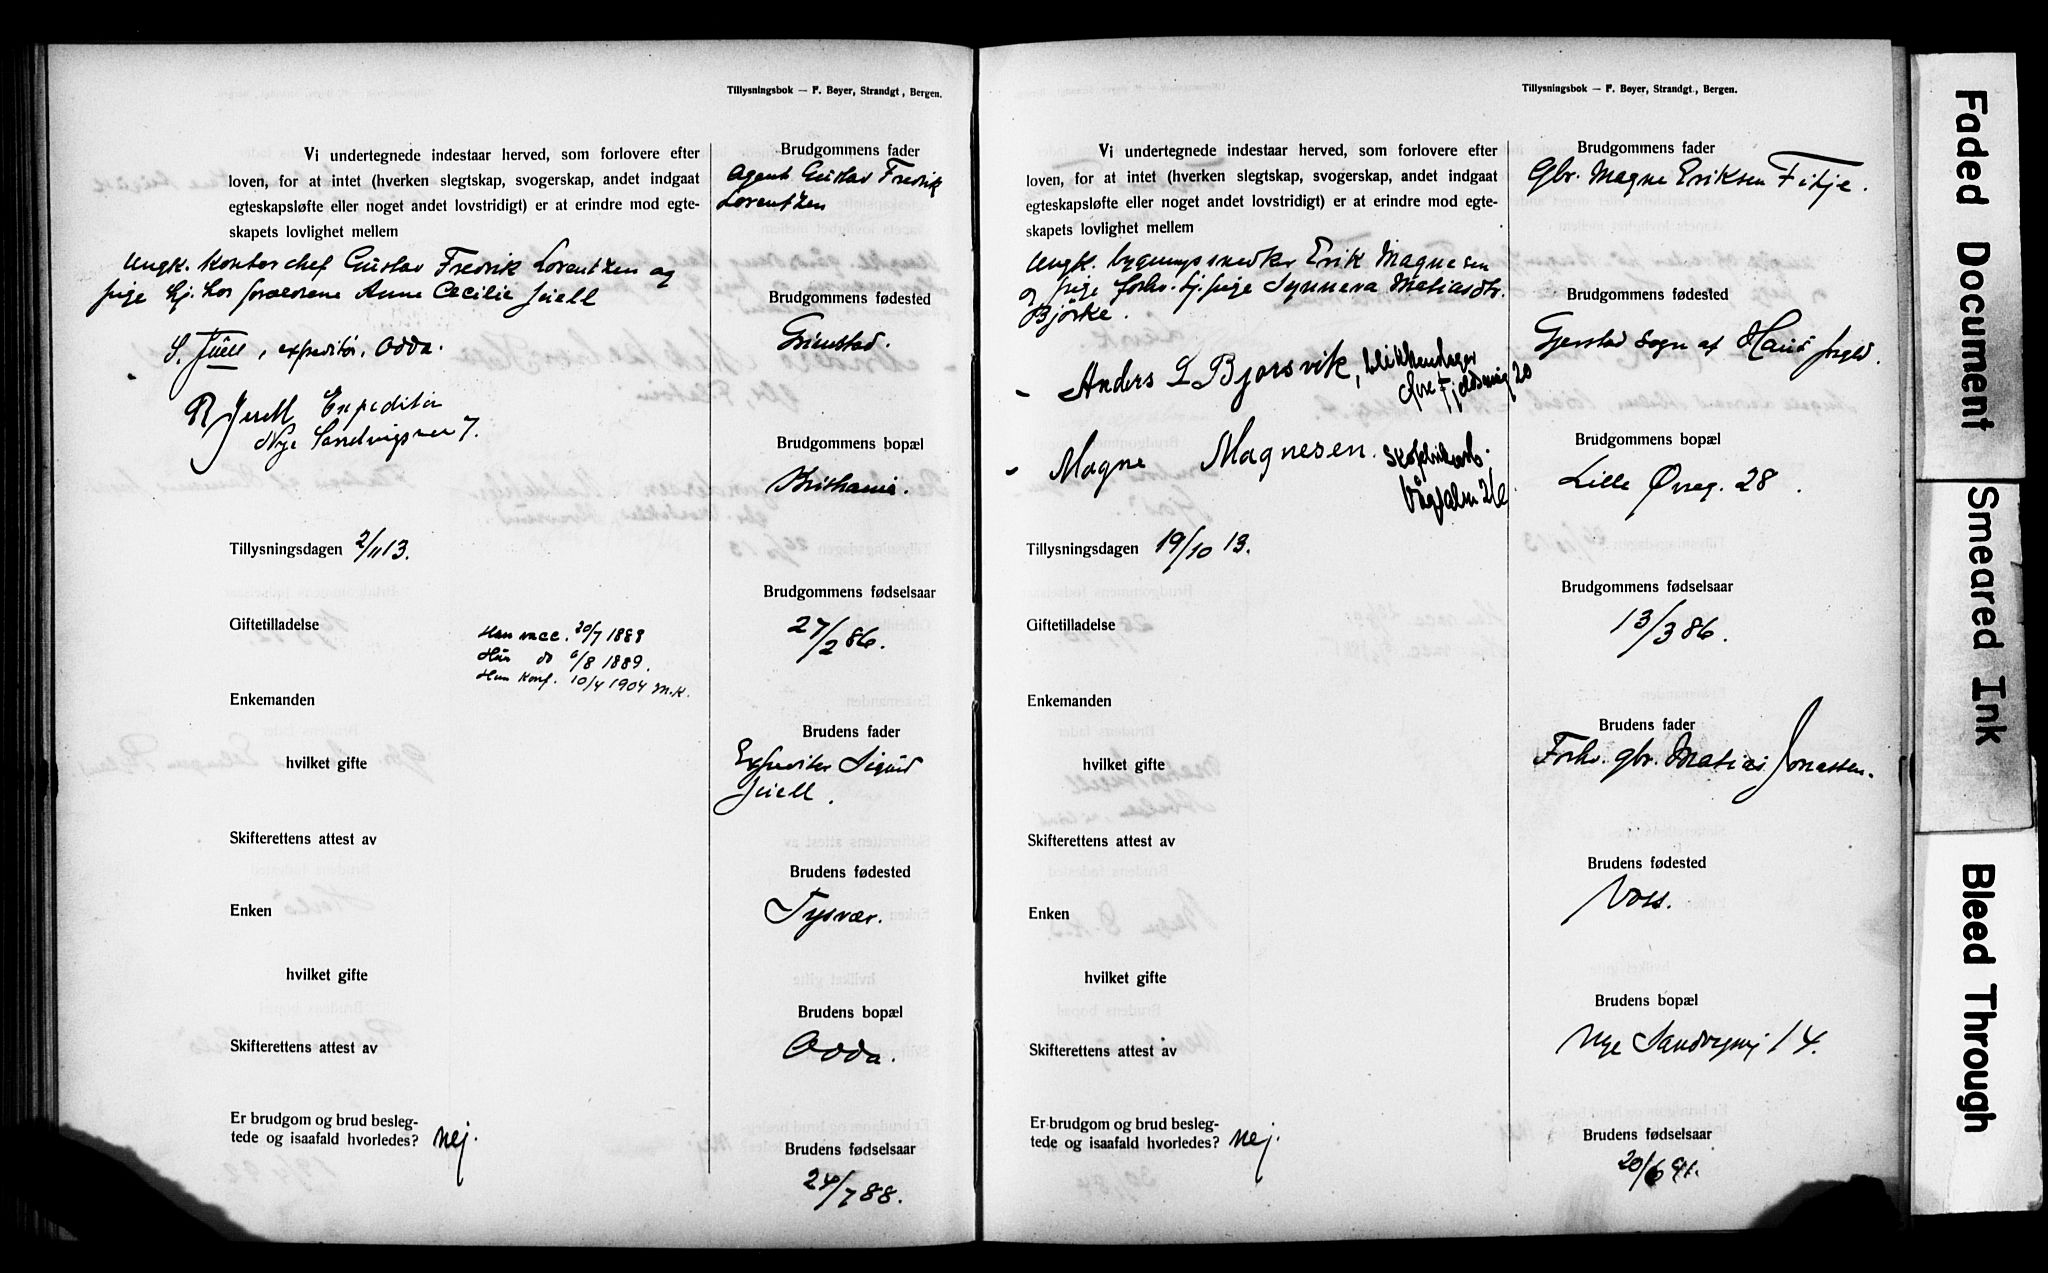 Tillysningsbok — F. Bøyer, Strandgt., Bergen.
Vi undertegnede indestaar herved, som forlovere efter
loven, for at intet (hverken slegtskap, svogerskap, andet indgaat
egteskapsløfte eller noget andet lovstridigt) er at erindre mod egte-
skapets lovlighet mellem
Ungk. Kontorchef Gustav Fredrik Lorentzen og
pige hj. hos forældrene Anne Cecilie Juell
S. Juell, expeditør, Odda.
R Juell Expeditør
Nye Sandvigsvei 7.
Tillysningsdagen 2/11 13.
Giftetilladelse
Han vacc. 20/7 1888
Hun do 6/8 1889.
Hun Konf. 10/4 1904 M.K.
Enkemanden
hvilket gifte
Skifterettens attest av
Enken
hvilket gifte
Skifterettens attest av
Er brudgom og brud besleg-
tede og isaafald hvorledes? Nej.
Brudgommens fader
Agent Gustav Fredrik
Lorentzen
Brudgommens fødested
Grimstad.
Brudgommens bopæl
Kristiania.
Brudgommens fødselsaar
27/2 86.
Brudens fader
Expeditør Sigurd
Juell.
Brudens fødested
Tysvær.
Brudens bopæl
Odda.
Brudens fødselsaar
24/7 88.
Tillysningsbok — F. Bøyer, Strandgt., Bergen.
Vi undertegnede indestaar herved, som forlovere efter
loven, for at intet (hverken slegtskap, svogerskap, andet indgaat
egteskapsløfte eller noget andet lovstridigt) er at erindre mod egte-
skapets lovlighet mellem
Ungk. bygningssnedker Erik Magnesen
og pige forhv. tj. pige Synneva Matiasdtr.
Bjørke.
Anders L Bjorsvik, blikkenslager
Øvre Fjeldsmug 20
Magne Magnesen. Skofabrikarb.
Tillysningsdagen 19/10 13.
Giftetilladelse
Enkemanden
hvilket gifte
Skifterettens attest av
Enken
hvilket gifte
Skifterettens attest av
Er brudgom og brud besleg-
tede og isaafald hvorledes? Nej.
Brudgommens fader
Gbr. Magne Eriksen Fitje.
Brudgommens fødested
Gjerstad sogn af Haus prgld.
Brudgommens bopæl
Lille Øvreg. 28.
Brudgommens fødselsaar
13/3 86.
Brudens fader
Forhv. gbr. Matias Jonassen.
Brudens fødested
Voss.
Brudens bopæl
Nye Sandvigsvej 14.
Brudens fødselsaar
20/6 91.
Faded Document
Smeared Ink
Bleed Through